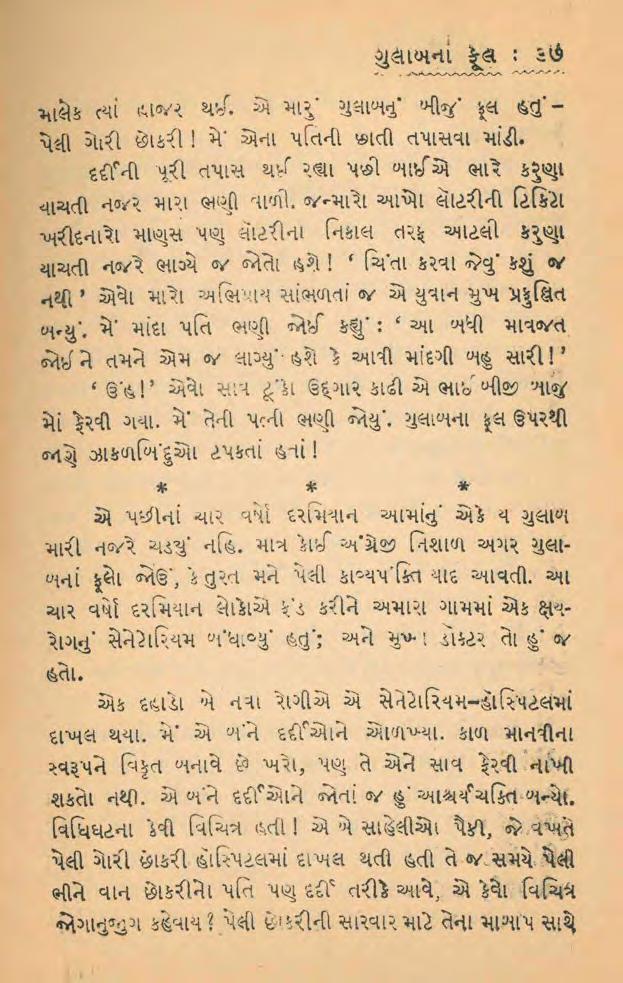 ગુલાબનાં ફૂલ : ૬૭
માલેક ત્યાં હાજર થઈ. એ મારું ગુલાબનું બીજું ફૂલ હતું –
પેલી ગોરી છોકરી ! મેં એના પતિની છાતી તપાસવા માંડી.
દર્દીની પૂરી તપાસ થઈ રહ્યા પછી બાઈએ ભારે કરુણા
યાચતી નજર મારા ભણી વાળી. જન્મારો આખો લૉટરીની ટિકિટો
ખરીદનારો માણસ પણ લૉટરીના નિકાલ તરફ આટલી કરુણા
યાચતી નજરે ભાગ્યે જ જોતો હશે ! ‘ ચિંતા કરવા જેવું કશું જ
નથી ’ એવો મારો અભિપ્રાય સાંભળતાં જ એ યુવાન મુખ પ્રફુલ્લિત
બન્યું. મેં માંદા પતિ ભણી જોઈ કહ્યું : ‘ આ બધી માવજત
જોઈને તમને એમ જ લાગ્યું હશે કે આવી માંદગી બહુ સારી ! ’
‘ ઉંહ ! ’ એવો સાવ ટૂંકો ઉદ્‌ગાર કાઢી એ ભાઈ બીજી બાજુ
મોં ફેરવી ગયા. મેં તેની પત્ની ભણી જોયું. ગુલાબના ફૂલ ઉપરથી
જાણે ઝાકળબિંદુઓ ટપકતાં હતાં !
* * *
એ પછીનાં ચાર વર્ષો દરમિયાન આમાંનું એકે ય ગુલાબ
મારી નજરે ચડ્યું નહિ. માત્ર કોઈ અંગ્રેજી નિશાળ અગર ગુલા-
બનાં ફૂલો જોઉં, કે તુરત મને પેલી કાવ્યપંક્તિ યાદ આવતી. આ
ચાર વર્ષો દરમિયાન લોકોએ ફંડ કરીને અમારા ગામમાં એક ક્ષય-
રોગનું સેનેટોરિયમ બંધાવ્યું હતું; અને મુખ્ય ડૉક્ટર તો હું જ
હતો.
એક દહાડો બે નવા રોગીએ એ સેનેટોરિયમ–હૉસ્પિટલમાં
દાખલ થયા. મેં એ બંને દર્દીઓને ઓળખ્યા. કાળ માનવીના
સ્વરૂપને વિકૃત બનાવે છે ખરો, પણ તે એને સાવ ફેરવી નાંખી
શકતો નથી. એ બંને દર્દીઓને જોતાં જ હું આશ્ચર્યચકિત બન્યો.
વિધિઘટના કેવી વિચિત્ર હતી ! એ બે સાહેલીઓ પૈકી, જે વખતે
પેલી ગોરી છોકરી હૉસ્પિટલમાં દાખલ થતી હતી તે જ સમયે પેલી
ભીને વાન છોકરીનો પતિ પણ દર્દી તરીકે આવે, એ કેવો વિચિત્ર
જોગાનુજુગ કહેવાય ? પેલી છોકરીની સારવાર માટે તેના માબાપ સાથે